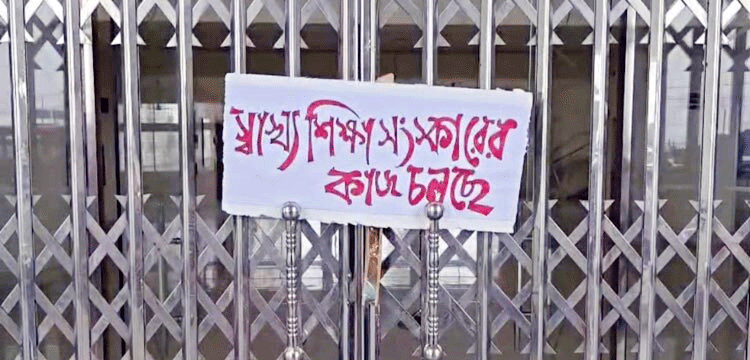 স্বাস্থ্য শিক্ষা সংস্কারের
কাজ চলছে